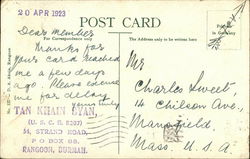 20 APR 1923
POST CARD
For Correspondence only
The Address only to be written here
Dear member
Thanks for
your card reached
me a few days
ago. Please excuse
me for delay
yours truly
TAN KHAIN GYAN,
(U. S. C. S. 8527)
54, STRAND ROAD,
P. O. BOX 88,
RANGOON, BURMAH.
Postage
in Germany
Mr
Charles Sweet,
14 Chilson Ave.,
Mansfield,
Mass. U.S.A.